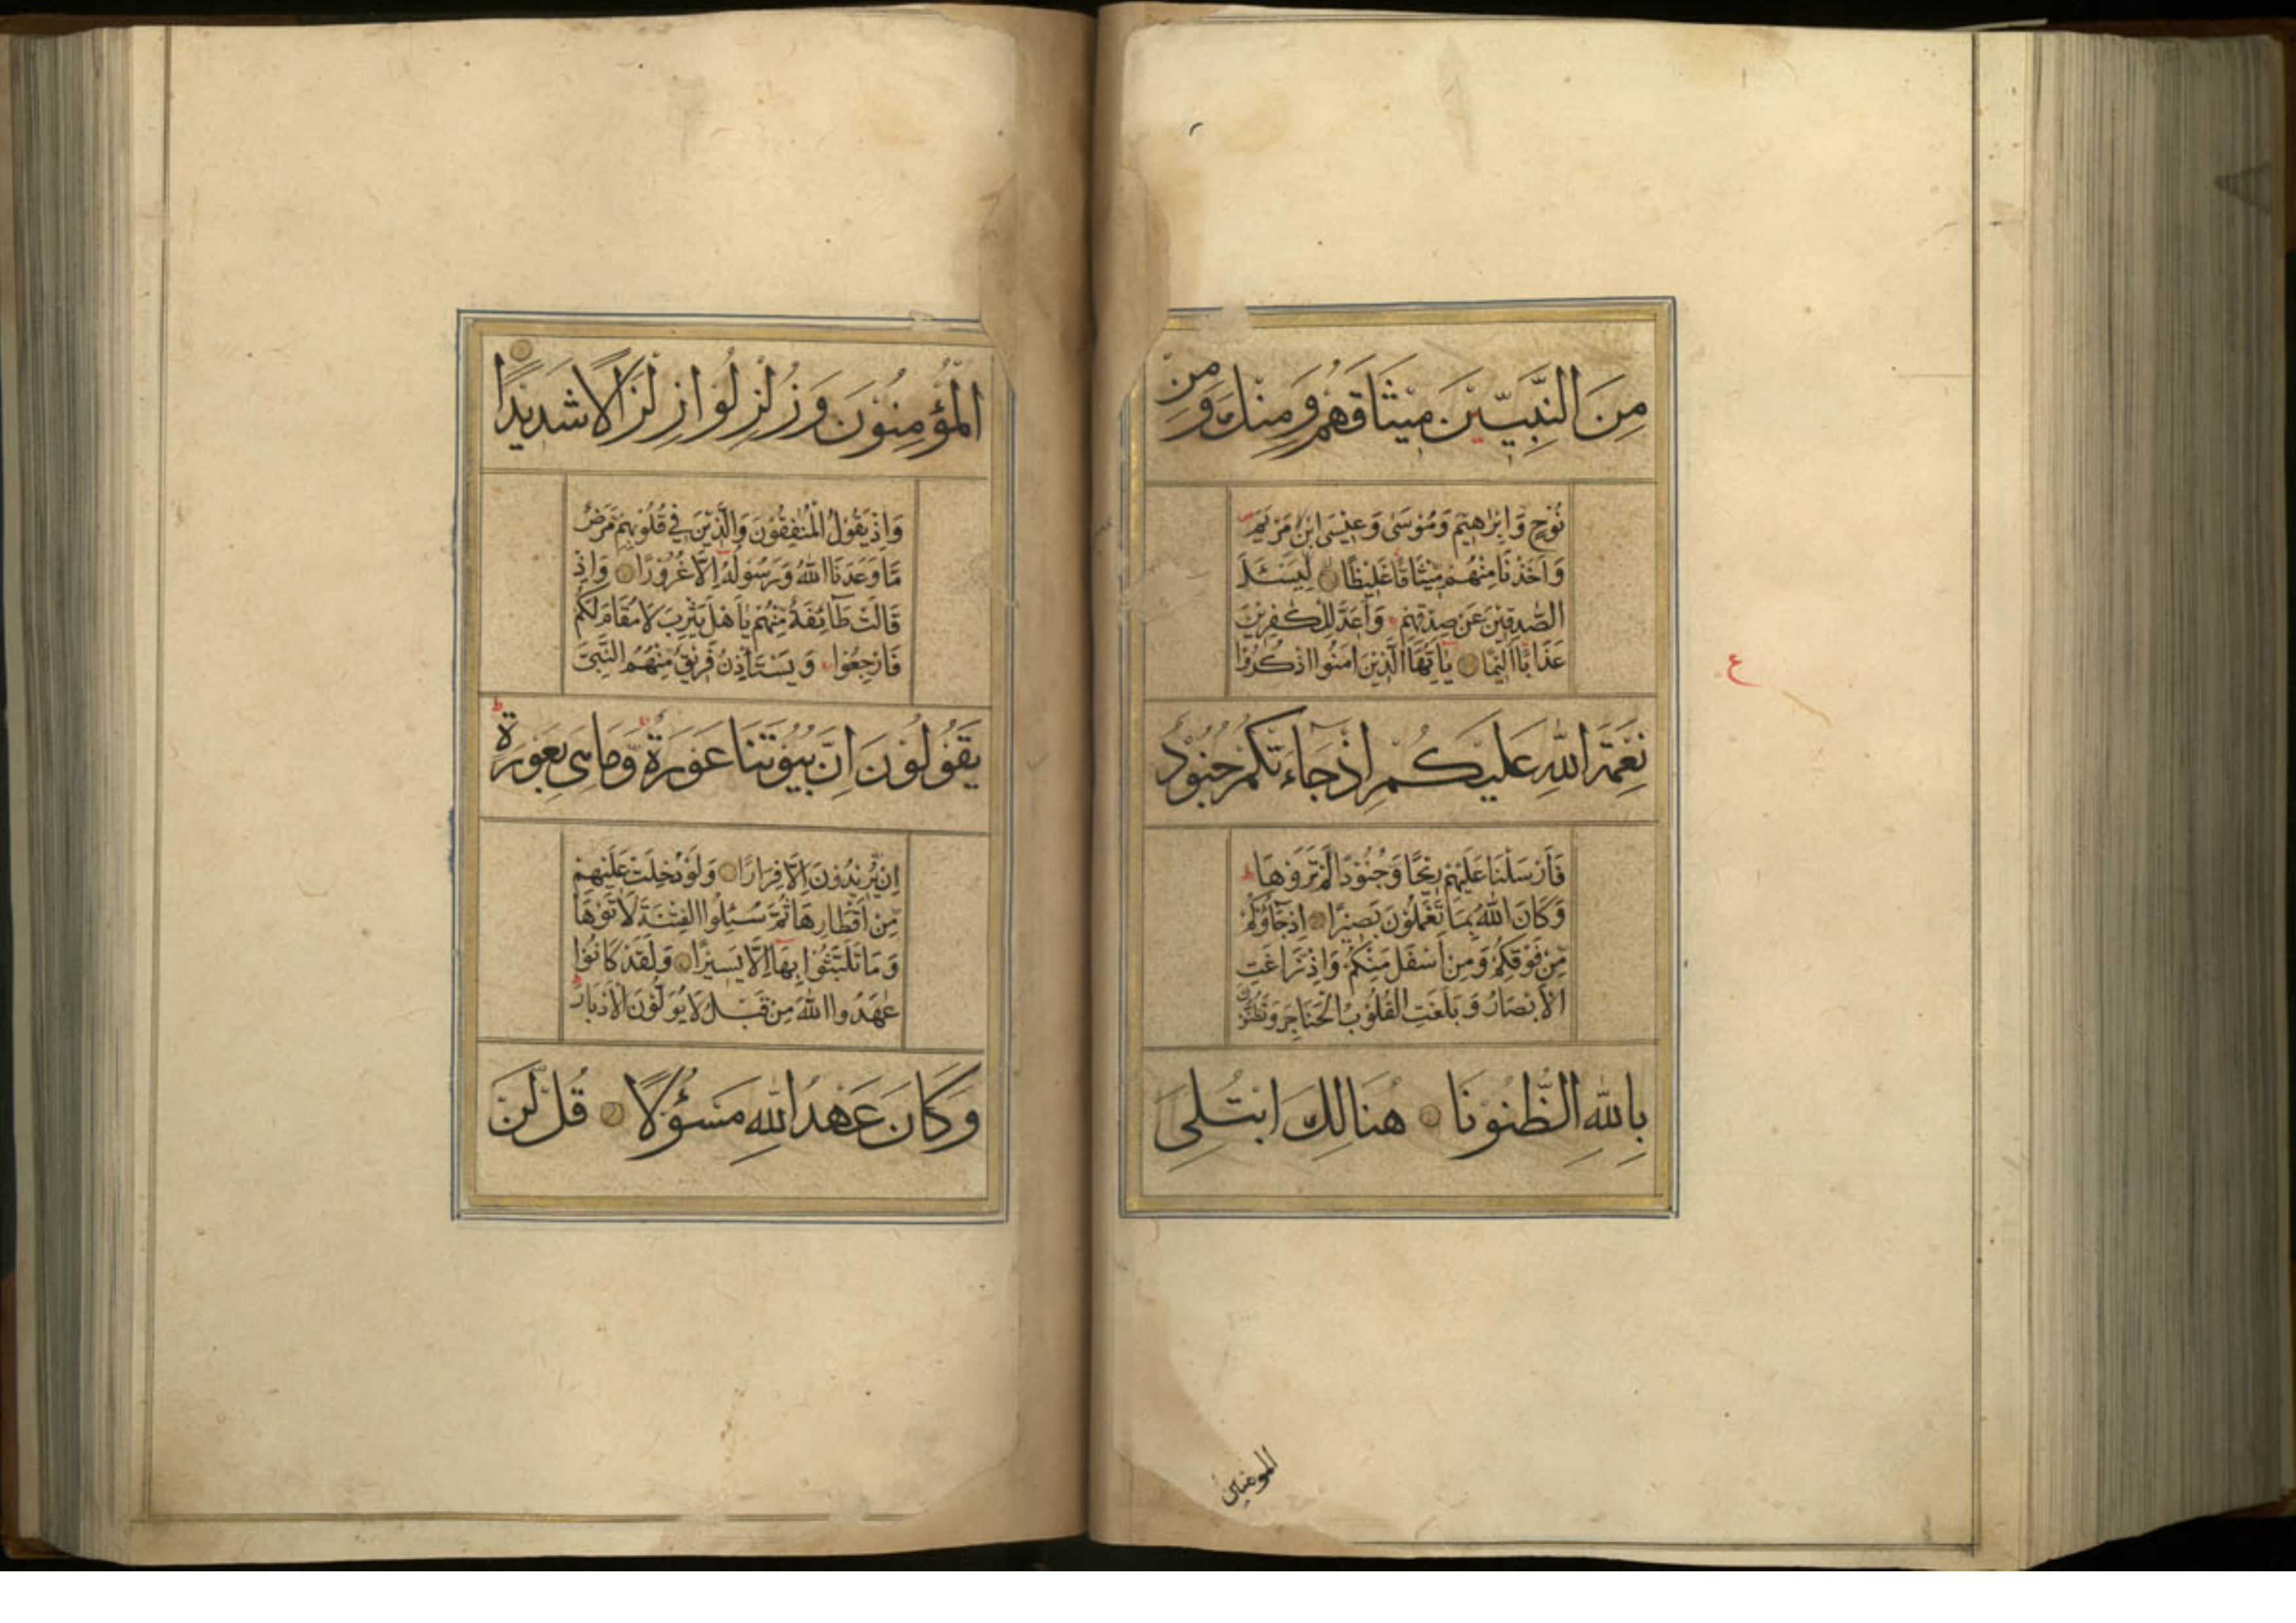 مِنَ النَّبِيّٖنَ مِيْثَاقَهُمْ وَمِنْكَ وَمِنْ
نُوْحٍ وَّاِبْرٰهِيْمَ وَمُوْسٰى وَعِيْسَى ابْنِ مَرْيَمَ
وَاَخَذْنَا مِنْهُمْ مِّيْثَاقًا غَلِيْظًا لِيَسْئَلَ
الصّٰدِقِيْنَ عَنْ صِدْقِهِمْ وَاَعَدَّ لِلْكٰفِرِيْنَ
عَذَابًا اَلِيْمًا يٰاَيُّهَا الَّذِيْنَ اٰمَنُوا اذْكُرُوْا
نِعْمَةَ اللّٰهِ عَلَيْكُمْ اِذْ جَاءَتْكُمْ جُنُوْدٌ
فَاَرْسَلْنَا عَلَيْهِمْ رِيْحًا وَّجُنُوْدًا لَّمْ تَرَوْهَا ط
وَكَانَ اللّٰهُ بِمَا تَعْمَلُوْنَ بَصِيْرًا اِذْ جَآؤُكُمْ
مِّنْ فَوْقِكُمْ وَمِنْ اَسْفَلَ مِنْكُمْ وَاِذْ زَاغَتِ
الْاَبْصَارُ وَبَلَغَتِ الْقُلُوْبُ الْحَنَاجِرَ وَتَظُنُّوْنَ
بِاللّٰهِ الظُّنُوْنَا هُنَالِكَ ابْتُلِىَ
ع
المومنين
الْمُؤْمِنُوْنَ وَزُلْزِلُوْا زِلْزَالًا شَدِيْدًا
وَاِذْ يَقُوْلُ الْمُنٰفِقُوْنَ وَالَّذِيْنَ فِيْ قُلُوْبِهِمْ مَّرَضٌ
مَّا وَعَدَنَا اللّٰهُ وَرَسُوْلُهٗ اِلَّا غُرُوْرًا وَاِذْ
قَالَتْ طَآئِفَةٌ مِّنْهُمْ يٰاَهْلَ يَثْرِبَ لَا مُقَامَ لَكُمْ
فَارْجِعُوْا وَيَسْتَأْذِنُ فَرِيْقٌ مِّنْهُمُ النَّبِيَّ
يَقُوْلُوْنَ اِنَّ بُيُوْتَنَا عَوْرَةٌ وَّمَا هِىَ بِعَوْرَةٍ ط
اِنْ يُّرِيْدُوْنَ اِلَّا فِرَارًا وَلَوْ دُخِلَتْ عَلَيْهِمْ
مِّنْ اَقْطَارِهَا ثُمَّ سُئِلُوا الْفِتْنَةَ لَاٰتَوْهَا
وَمَا تَلَبَّثُوْا بِهَا اِلَّا يَسِيْرًا وَلَقَدْ كَانُوْا
عٰهَدُوا اللّٰهَ مِنْ قَبْلُ لَا يُوَلُّوْنَ الْاَدْبَارَ ط
وَكَانَ عَهْدُ اللّٰهِ مَسْئُوْلًا قُلْ لَّنْ